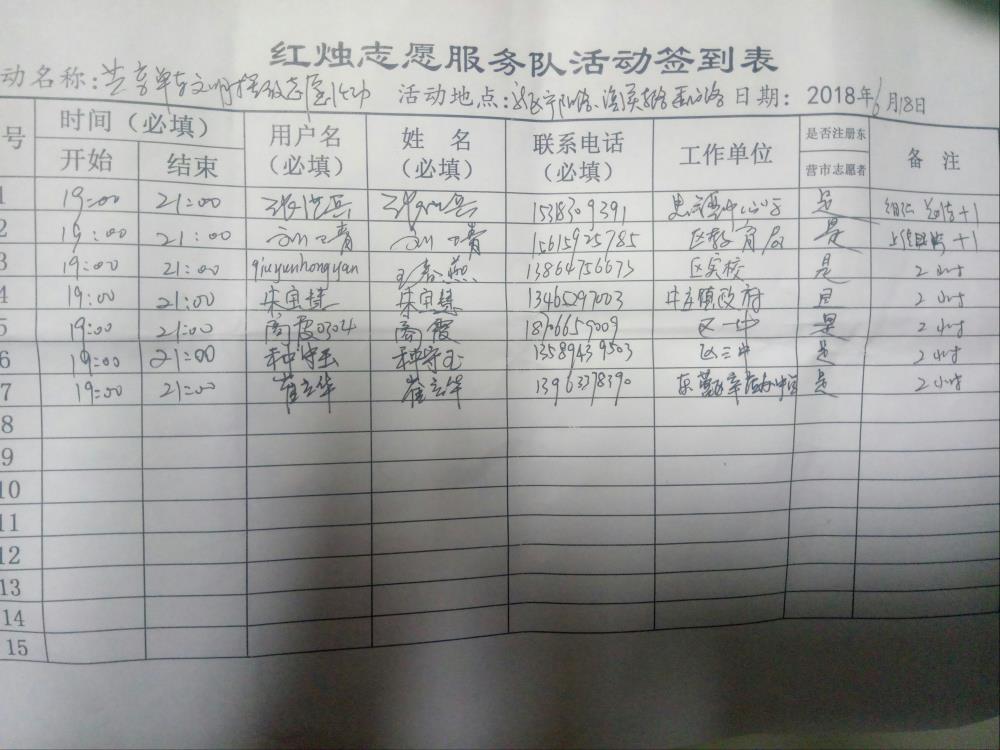 红烛志愿服务队活动签到表
动名称：共享单车文明摆放志愿活动 活动地点： 日期：2018年6月18日
号 时间（必填） 用户名（必填） 姓名（必填） 联系电话（必填） 工作单位 是否注册东营市志愿者 备注
开始 结束
1 19:00 21:00 1538309391 是 +1
2 19:00 21:00 15615925785 区教育局 是 +1
3 19:00 21:00 qiuyunhongyan 王春燕 13864756673 区实校 是 2小时
4 19:00 21:00 宋宝慧 宋宝慧 13465297003 牛庄镇政府 是 2小时
5 19:00 21:00 商霞0304 商霞 18706659009 区一中 是 2小时
6 19:00 21:00 种守玉 种守玉 13589439503 区三中 是 2小时
7 19:00 21:00 崔立华 崔立华 1396378390 是 2小时
8
9
10
11
12
13
14
15